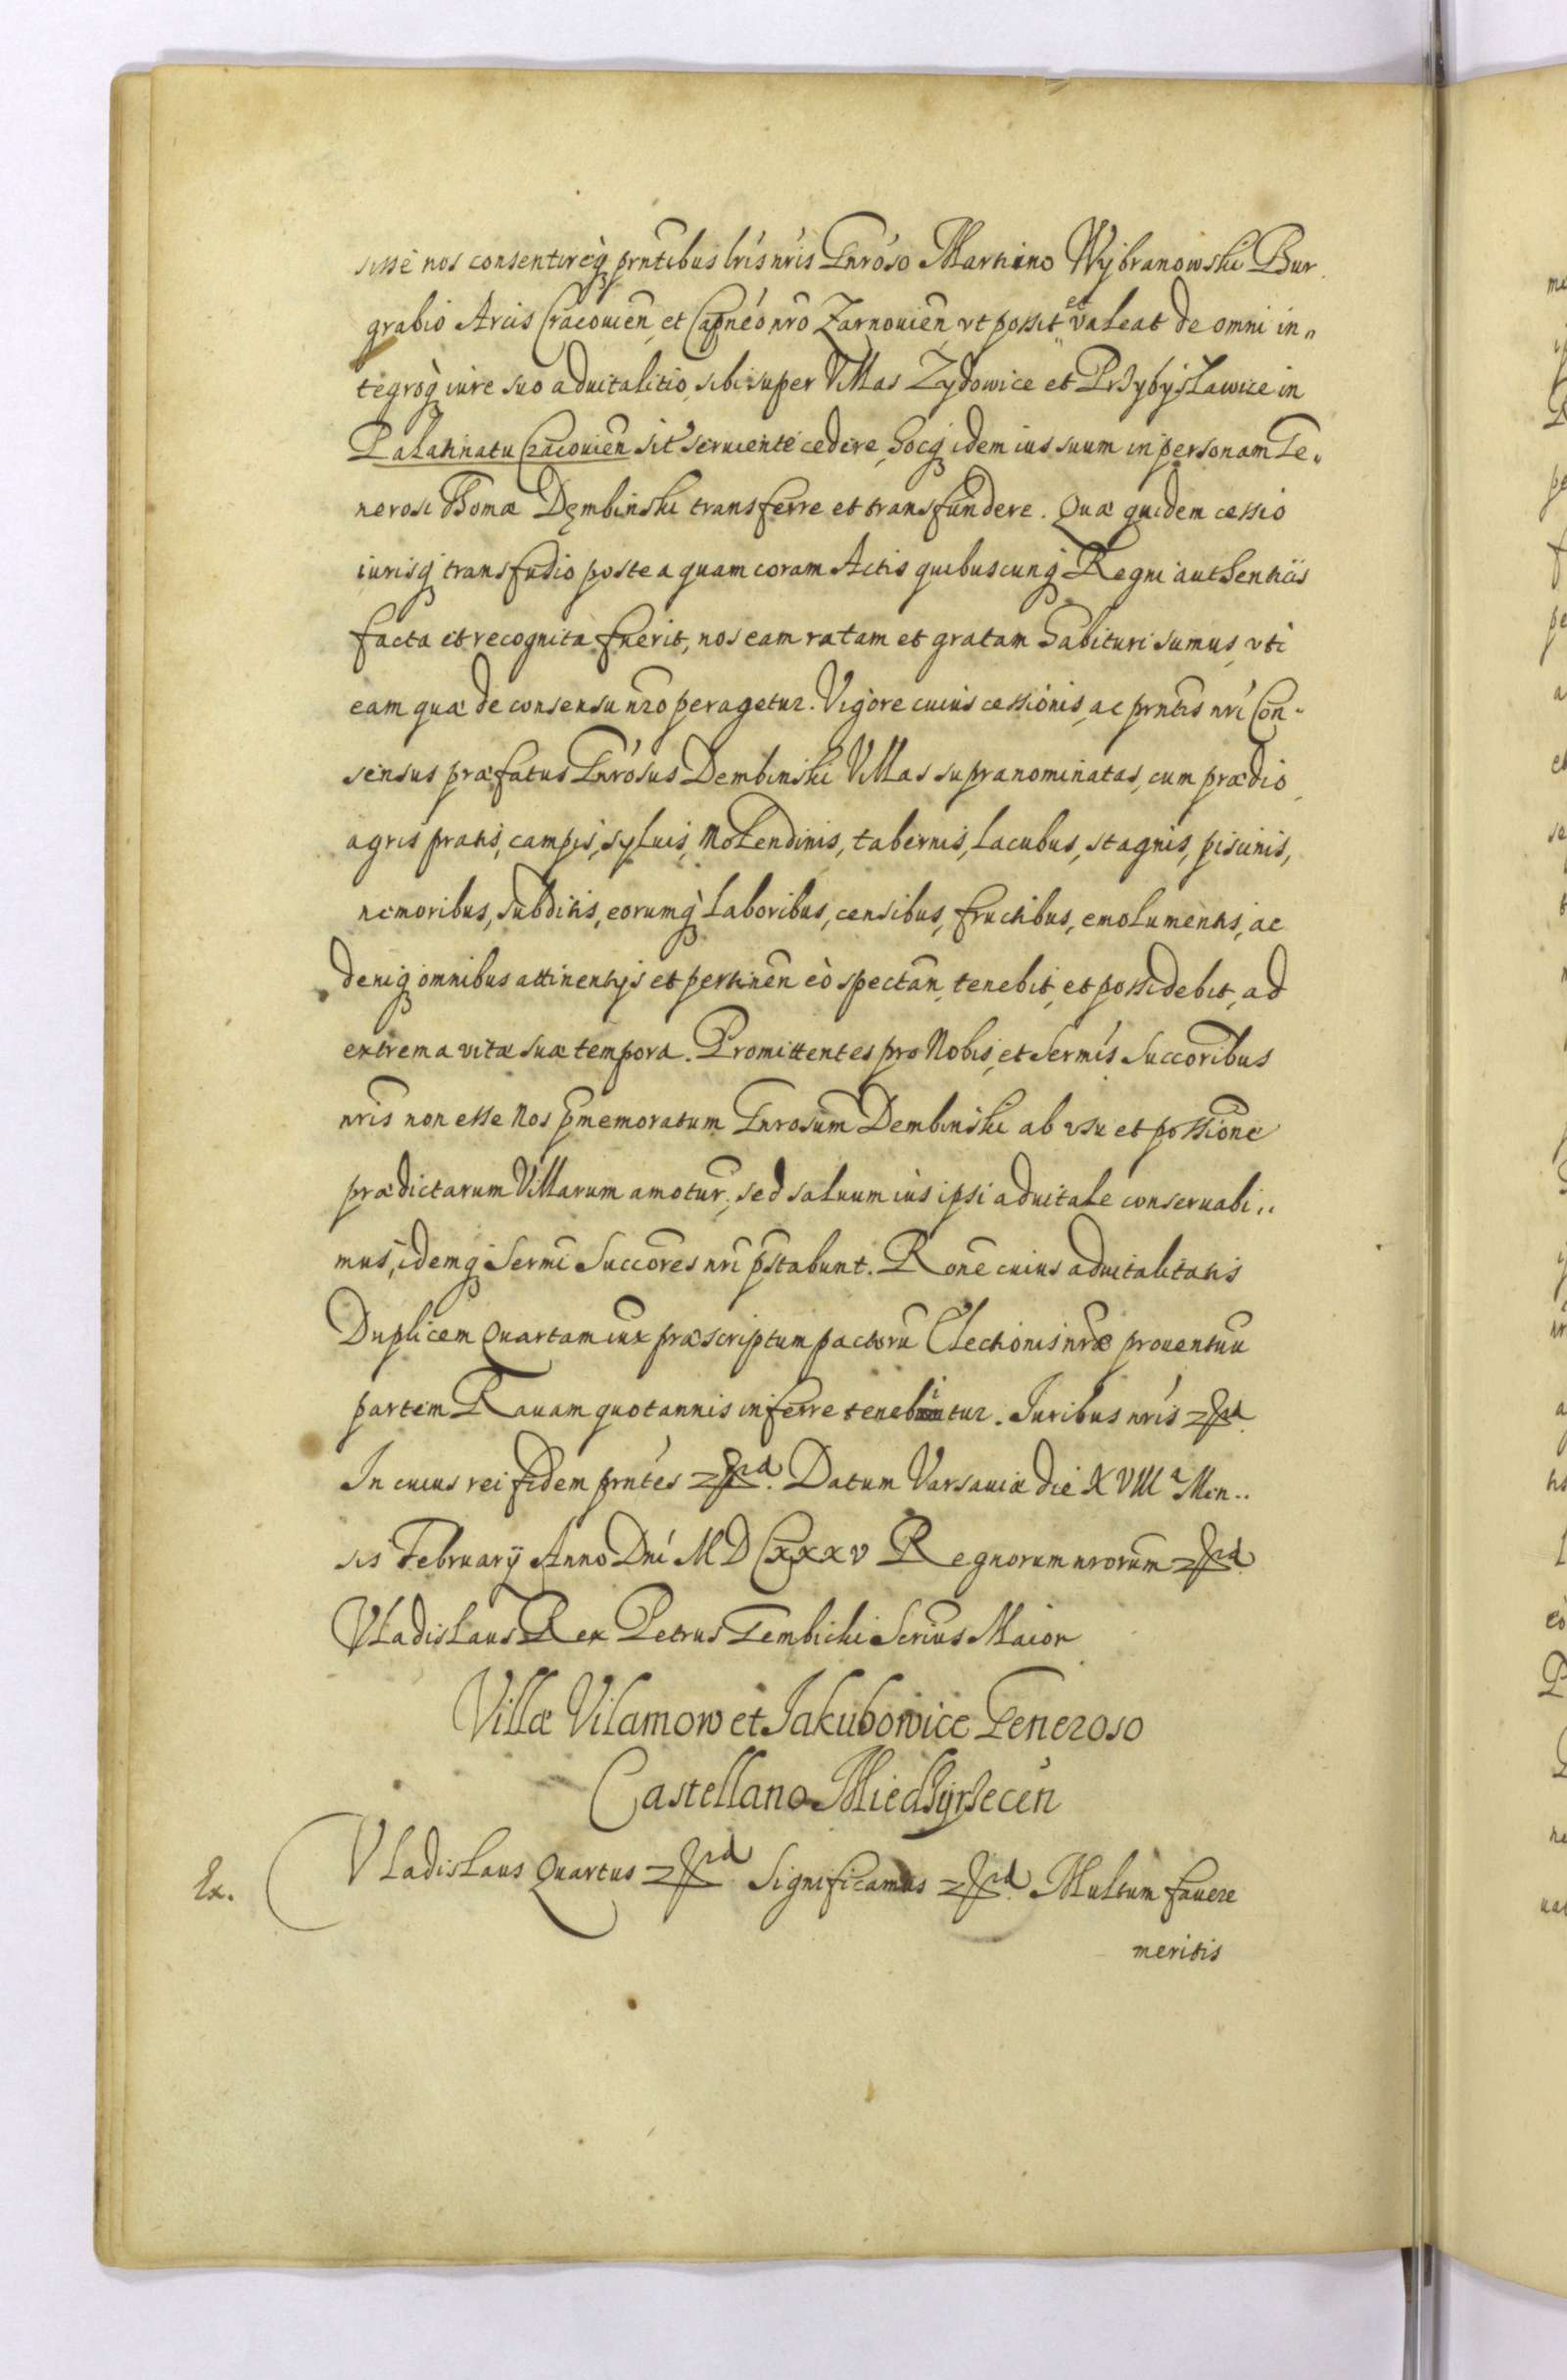 sisse nos consentireq̃ prñtibus lrís nrís Gnróso Martino Wybranowski Bur
grabio Arcis Cracouień, et Capnéo nrõ Zarnouień, vt possit et valeat de omni in„
tegroq̃ iure suo aduitalitio, sibi super Villas Zydowice et Przybysławice in
Palatinatu Cracouień sit' seruiente cedere, hocq̃ idem ius suum in personam Ge„
nerosi Thomæ Dembinski transferre et transfundere. Quæ quidem cessio
iurisq̃ transfusio postea quam coram Actis quibuscunq̃ Regni authenticis
facta et recognita fuerit, nos eam ratam et gratam habituri sumus, vti
eam quæ de consensu nrõ peragetur. Vigore cuius cessionis, ac prñtis nrí Con„
sensus præfatus Gnrósus Dembinski Villas supranominatas, cum prædio,
agris pratis, campis, syluis, Molendinis, tabernis, lacubus, stagnis, piscinis,
nemoribus, subditis, eorumq̃ laboribus, censibus, fructibus, emolumentis, ac
deniq̃ omnibus attinentijs et pertineñ eò spectañ, tenebit, et possidebit, ad
extrema vitæ suæ tempora. Promittentes pro Nobis, et Sermís Succoribus
nris non esse Nos p̃memoratum Gnrosum Dembinski ab vsu et possione
prædictarum Villarum amotur̃, sed saluum ius ipsi aduitale conseruabi„
mus, idemq̃ Sermi Succores nri p̃stabunt. Rone cuius aduitalitatis
Duplicem Quartam iux præscriptum pactorũ Electionis nræ prouentuũ
partem Rauam quotannis inferre tenebitur. Iuribus nrís etc.
In cuius rei fidem prntes etc. Datum Varsauiæ die XVIIIa Men„
sis February Anno Dni MDCXXXV Regnorum nrorum etc.
Vladislaus Rex Petrus Gembicki Scrius Maior
Villæ Vilamow et Jakubowice Generoso
Castellano Miedzyrzeceń
Ex. Vladislaus Quartus etc. Significamus etc. Multum fauere
meritis